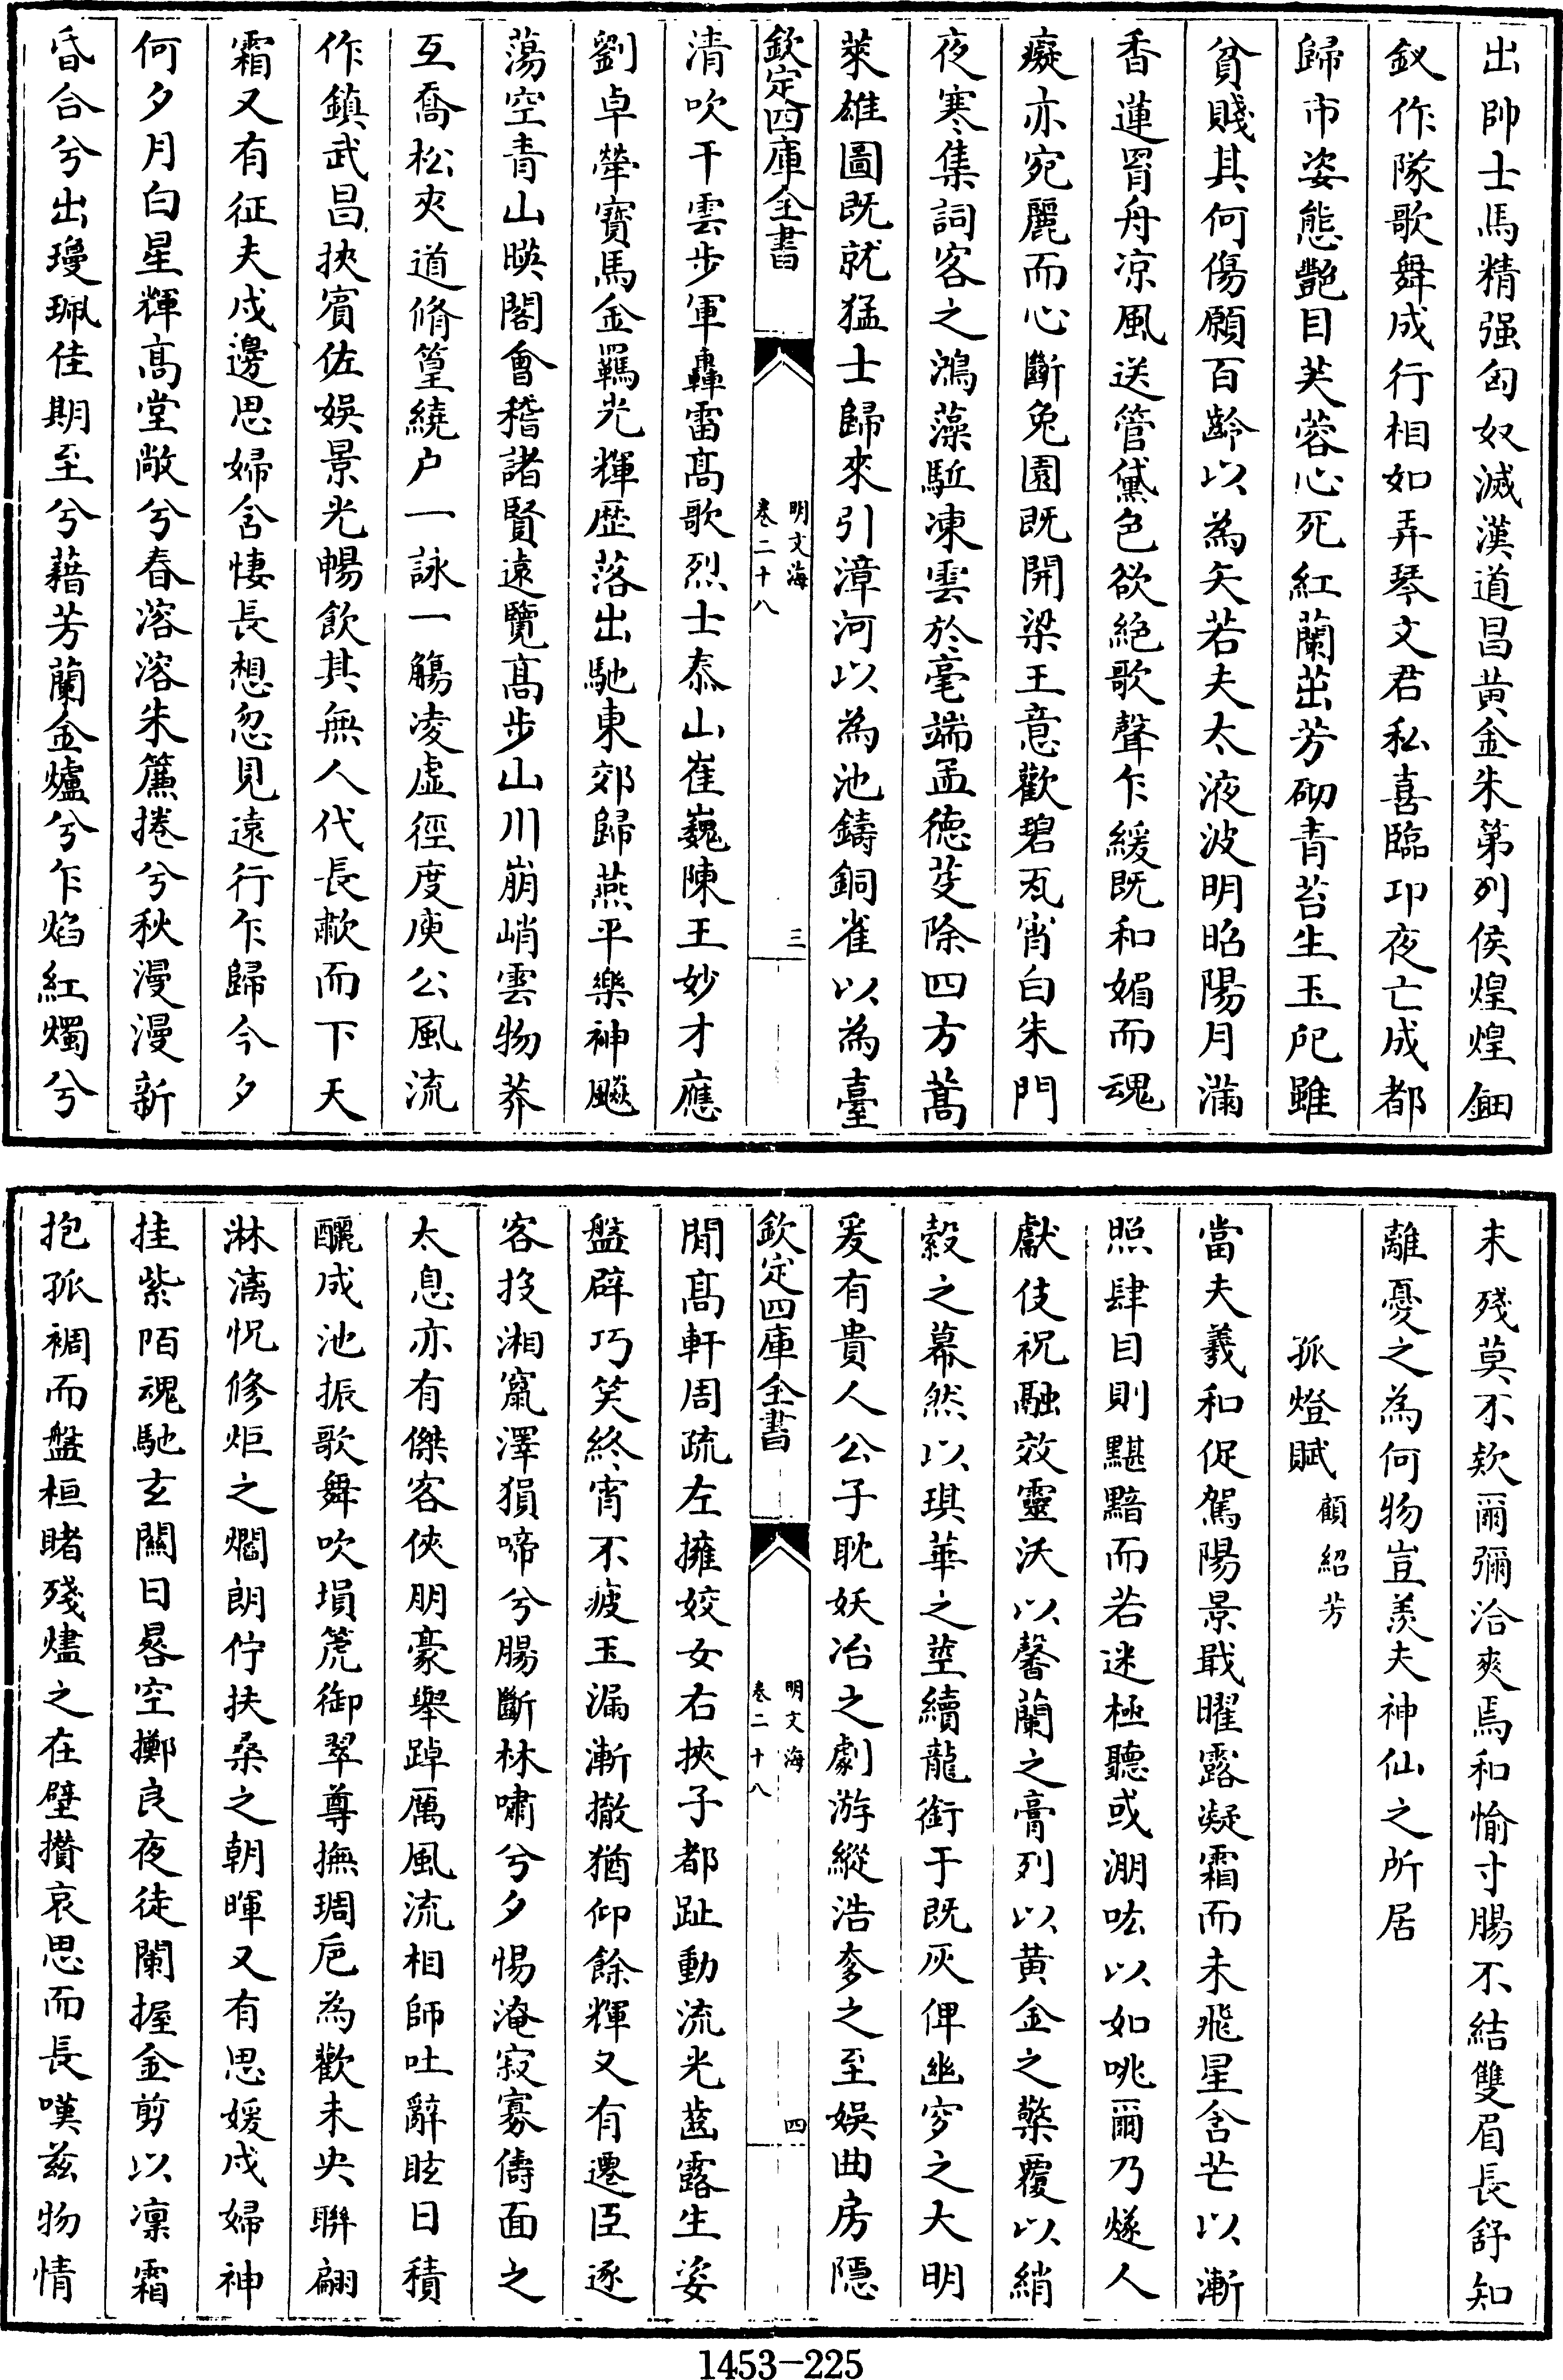 出帥士馬精强匈奴滅漢道昌黄金朱第列侯煌煌鈿
釵作隊歌舞成行相如弄琴文君私喜臨卭夜亡成都
歸市姿態艶目芙蓉心死紅蘭茁芳砌青苔生玉戺雖
貧賤其何傷願百齡以為矢若夫太液波明昭陽月滿
香蓮罥舟凉風送管黛色欲絶歌聲乍緩既和媚而魂
癡亦宛麗而心斷兔園既開梁王意歡碧瓦宵白朱門
夜寒集詞客之鴻藻駈凍雲於毫端孟徳芟除四方蒿
萊雄圖既就猛士歸來引漳河以為池鑄銅雀以為臺
欽定四庫全書
明文海
卷二十八
三
清吹干雲步軍轟雷髙歌烈士泰山崔巍陳王妙才應
劉卓犖寶馬金羈光輝歴落出馳東郊歸燕平樂神飈
蕩空青山暎閣會稽諸賢遠覽髙步山川崩峭雲物莽
互喬松夾道脩篁繞户一詠一觴凌虚徑度庾公風流
作鎮武昌挾賓佐娯景光暢飲其無人代長歗而下天
霜又有征夫戍邊思婦含悽長想忽見遠行乍歸今夕
何夕月白星輝髙堂敞兮春溶溶朱簾捲兮秋漫漫新
昏合兮出瓊珮佳期至兮藉芳蘭金爐兮乍焰紅燭兮
未殘莫不欵爾彌洽爽焉和愉寸腸不結雙眉長舒知
離憂之為何物豈羨夫神仙之所居
孤燈賦
顧紹芳
當夫羲和促駕陽景戢曜露凝霜而未飛星含芒以漸
照肆目則黮黯而若迷極聽或淜吰以如咷爾乃燧人
獻伎祝融效靈沃以馨蘭之膏列以黄金之檠覆以綃
縠之幕然以琪華之莖續龍銜于既灰俾幽穸之大明
爰有貴人公子耽妖冶之劇游縱浩奓之至娯曲房隱
欽定四庫全書
明文海
卷二十八
四
閒髙軒周疏左擁姣女右挾子都趾動流光齒露生姿
盤辟巧笑終宵不疲玉漏漸撤猶仰餘輝又有遷臣逐
客投湘竄澤猨啼兮腸斷林嘯兮夕惕淹寂寥儔面之
太息亦有傑客俠朋豪舉踔厲風流相師吐辭眩日積
釃成池振歌舞吹塤箎御翠尊撫琱巵為歡未央聯翩
淋漓怳修炬之爓朗佇扶桑之朝暉又有思媛戍婦神
挂紫陌魂馳玄關日晷空擲良夜徒闌握金剪以凛霜
抱孤裯而盤桓睹殘燼之在壁攢哀思而長嘆兹物情
1453-225